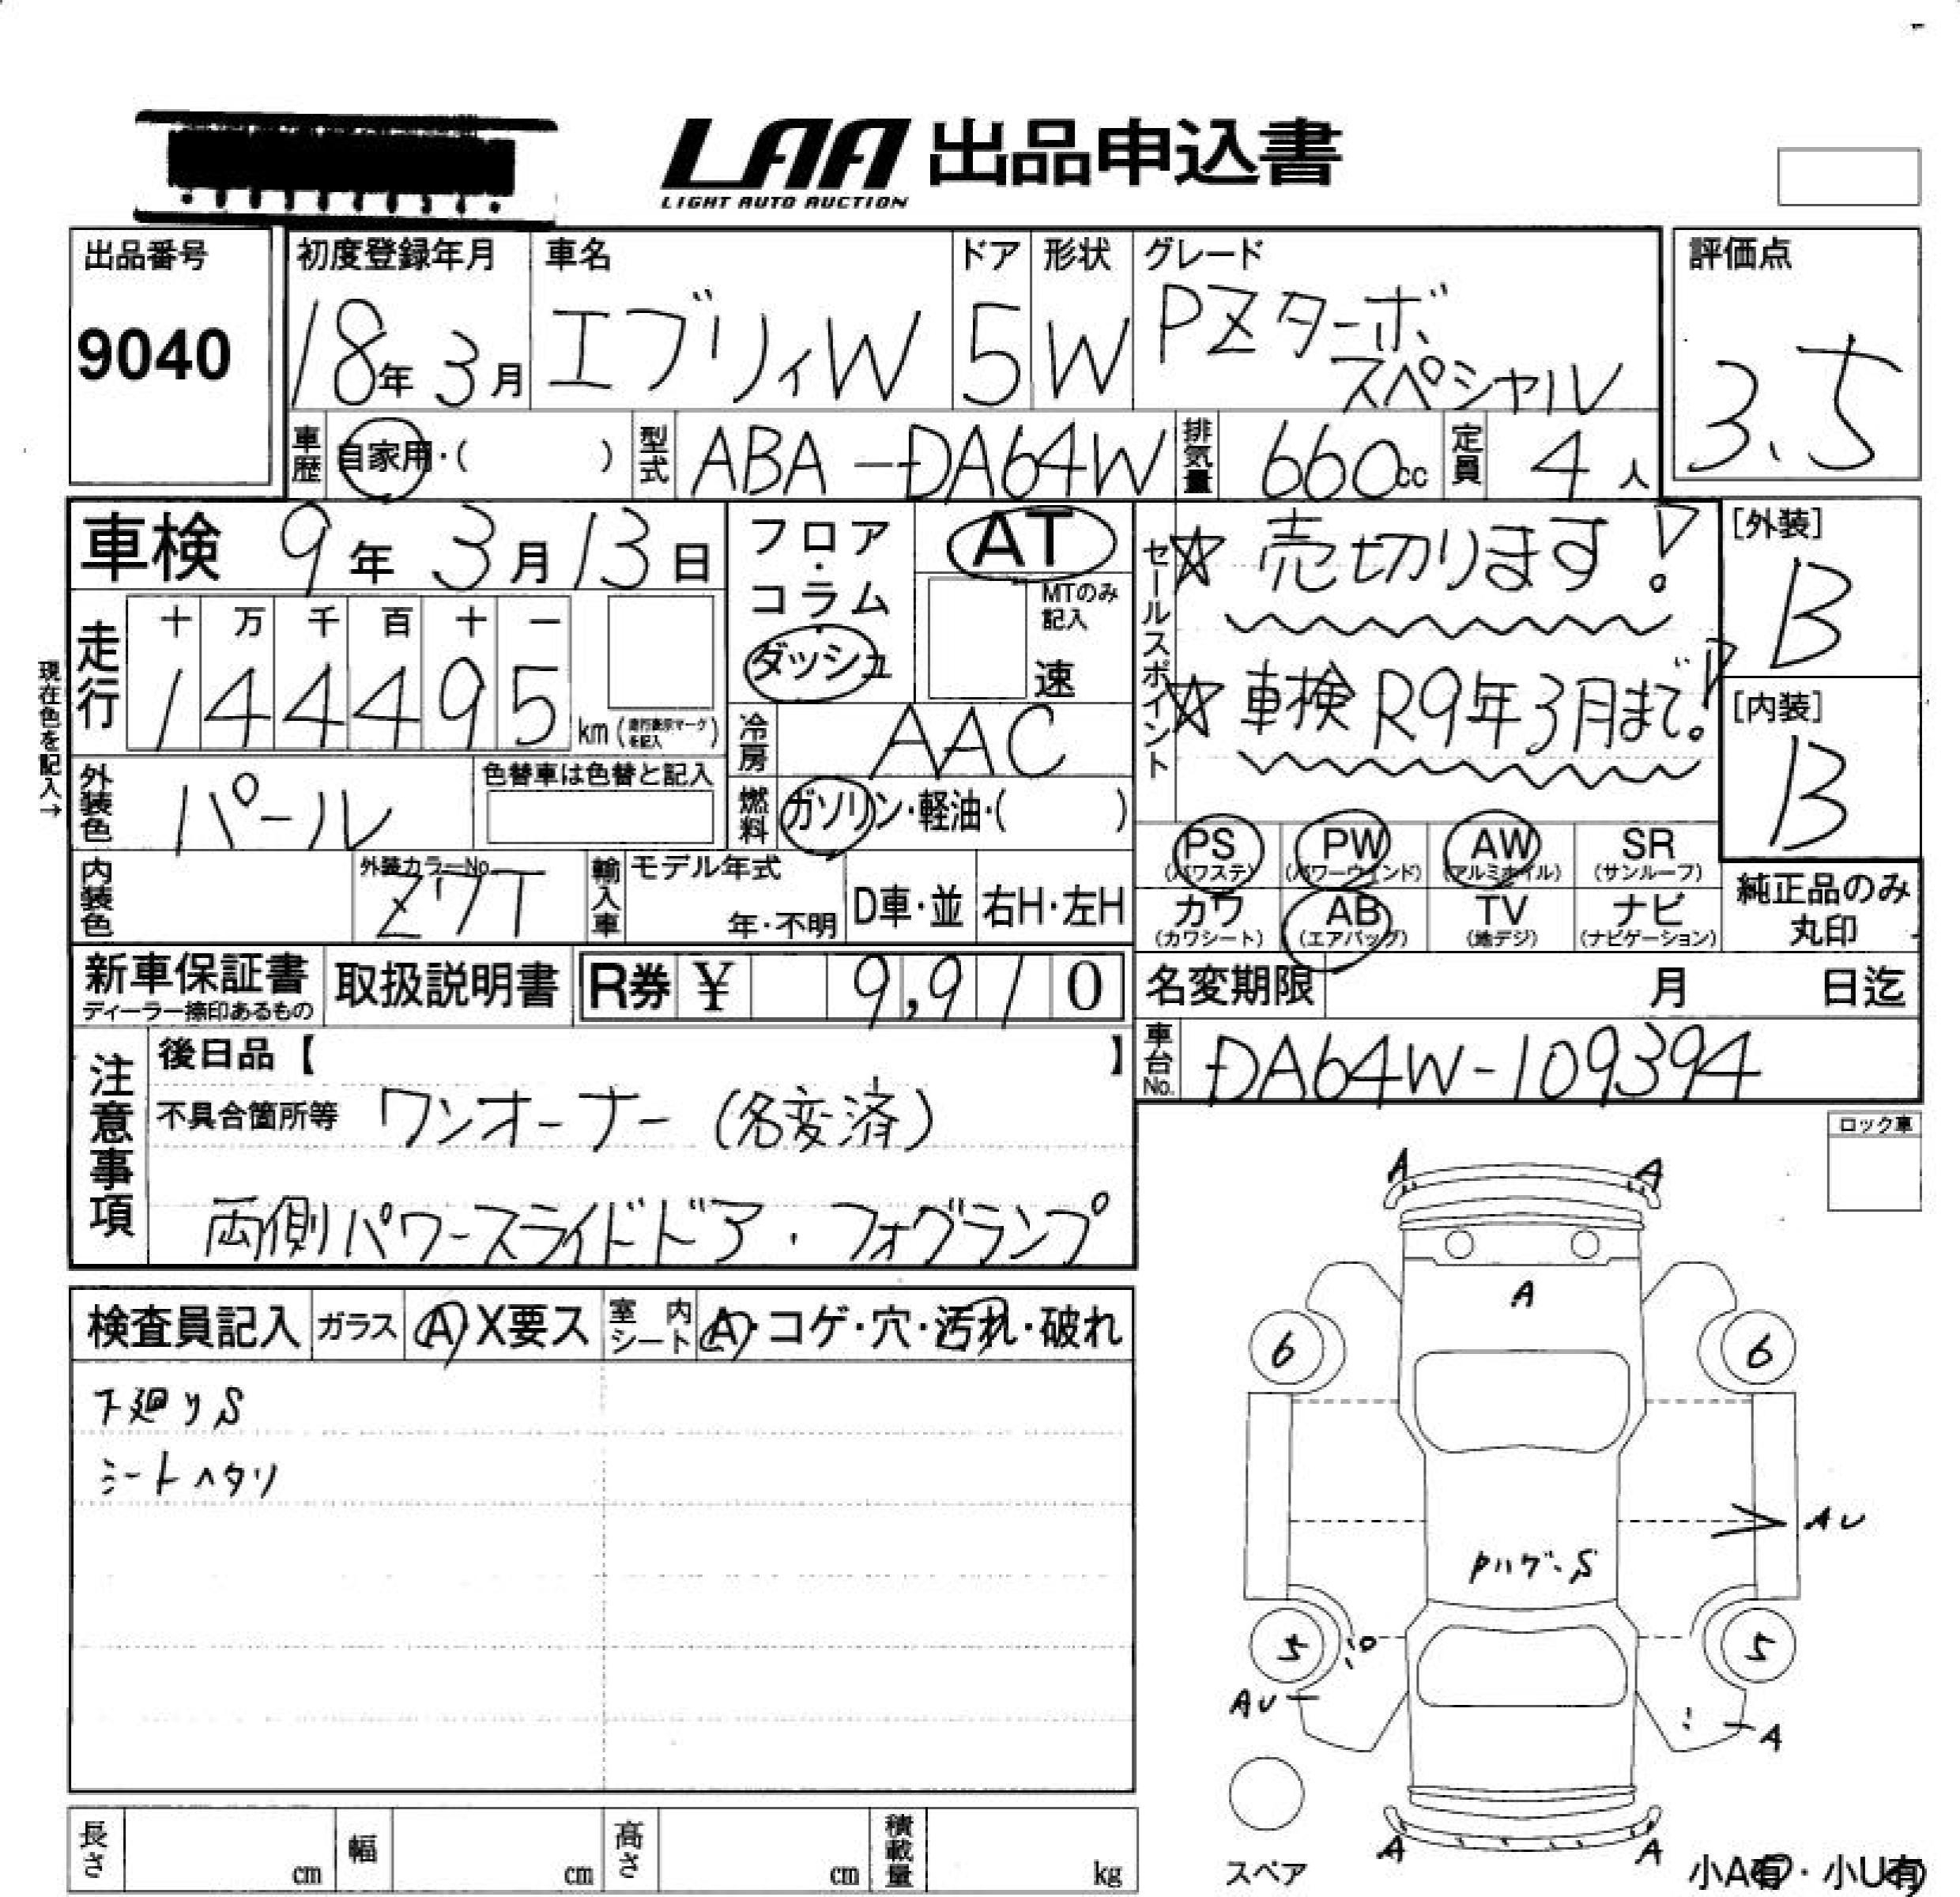 LAA 出品申込書
LIGHT AUTO AUCTION
出品番号
9040
初度登録年月
18年 3月
車名
エブリィW
ドア
5
形状
W
グレード
PZターボ
スペシャル
評価点
3.5
車歴 自家用・( )
型式 ABA-DA64W
排気量 660cc
定員 4人
車検 9年 3月 13日
フロア・コラム
ダッシュ
AT
MTのみ記入
速
セールスポイント
☆ 売切ります!
☆ 車検R9年3月まで!
[外装]
B
[内装]
B
現在色を記入→
走行
十 万 千 百 十 一
1 4 4 4 9 5 km (走行表示マークを記入)
冷房 AAC
外装色 パール
色替車は色替と記入
燃料 ガソリン・軽油・( )
PS (パワステ)
PW (パワーウインド)
AW (アルミホイル)
SR (サンルーフ)
カワ (カワシート)
AB (エアバッグ)
TV (地デジ)
ナビ (ナビゲーション)
純正品のみ
丸印
内装色
外装カラーNo.
Z7T
輸入車
モデル年式
年・不明
D車・並
右H・左H
新車保証書
ディーラー捺印あるもの
取扱説明書
R券 ¥ 9,910
名変期限 月 日迄
車台No. DA64W-109394
注意事項
後日品【 】
不具合箇所等 ワンオーナー (名変済)
両側パワースライドドア・フォグランプ
ロック車
検査員記入
ガラス A X要ス
室内シート A・コゲ・穴・汚れ・破れ
下廻りS
シートヘタリ
A A
A
6 6
AU
5 5
AU
A
A A
スペア
小A有・小U有
長さ cm
幅 cm
高さ cm
積載量 kg